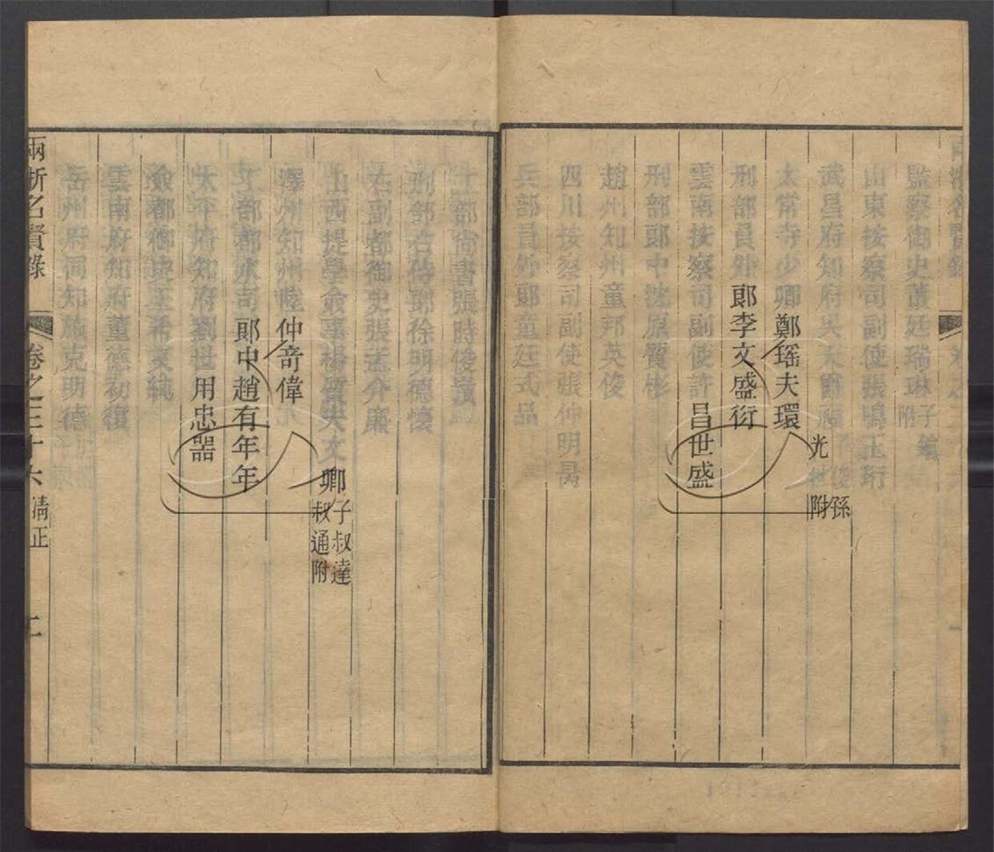 監察御史董廷瑞琳 子 附
山東按察司副使張鳴玉珩
武昌府知府吳天爵 光 孫附
太常寺少卿鄭瑤夫環
刑部員外郎李文盛衍
雲南按察司副使許昌世盛
刑部郎中沈原質彬
趙州知州童邦英俊
四川按察司副使張仲明昺
兵部員外郎童廷式品
工部尚書張時俊
刑部右侍郎徐明德懷
右副都御史張孟介廉
山西提學僉事楊質夫文卿 子叔達叔通附
澤州知州陸仲奇偉
工部都水司郎中趙有年年
太平府知府劉世用忠器
僉都御史王希東純
雲南府知府董德初復
岳州府同知施克明德
兩浙名賢錄 卷之三十六 清正 二